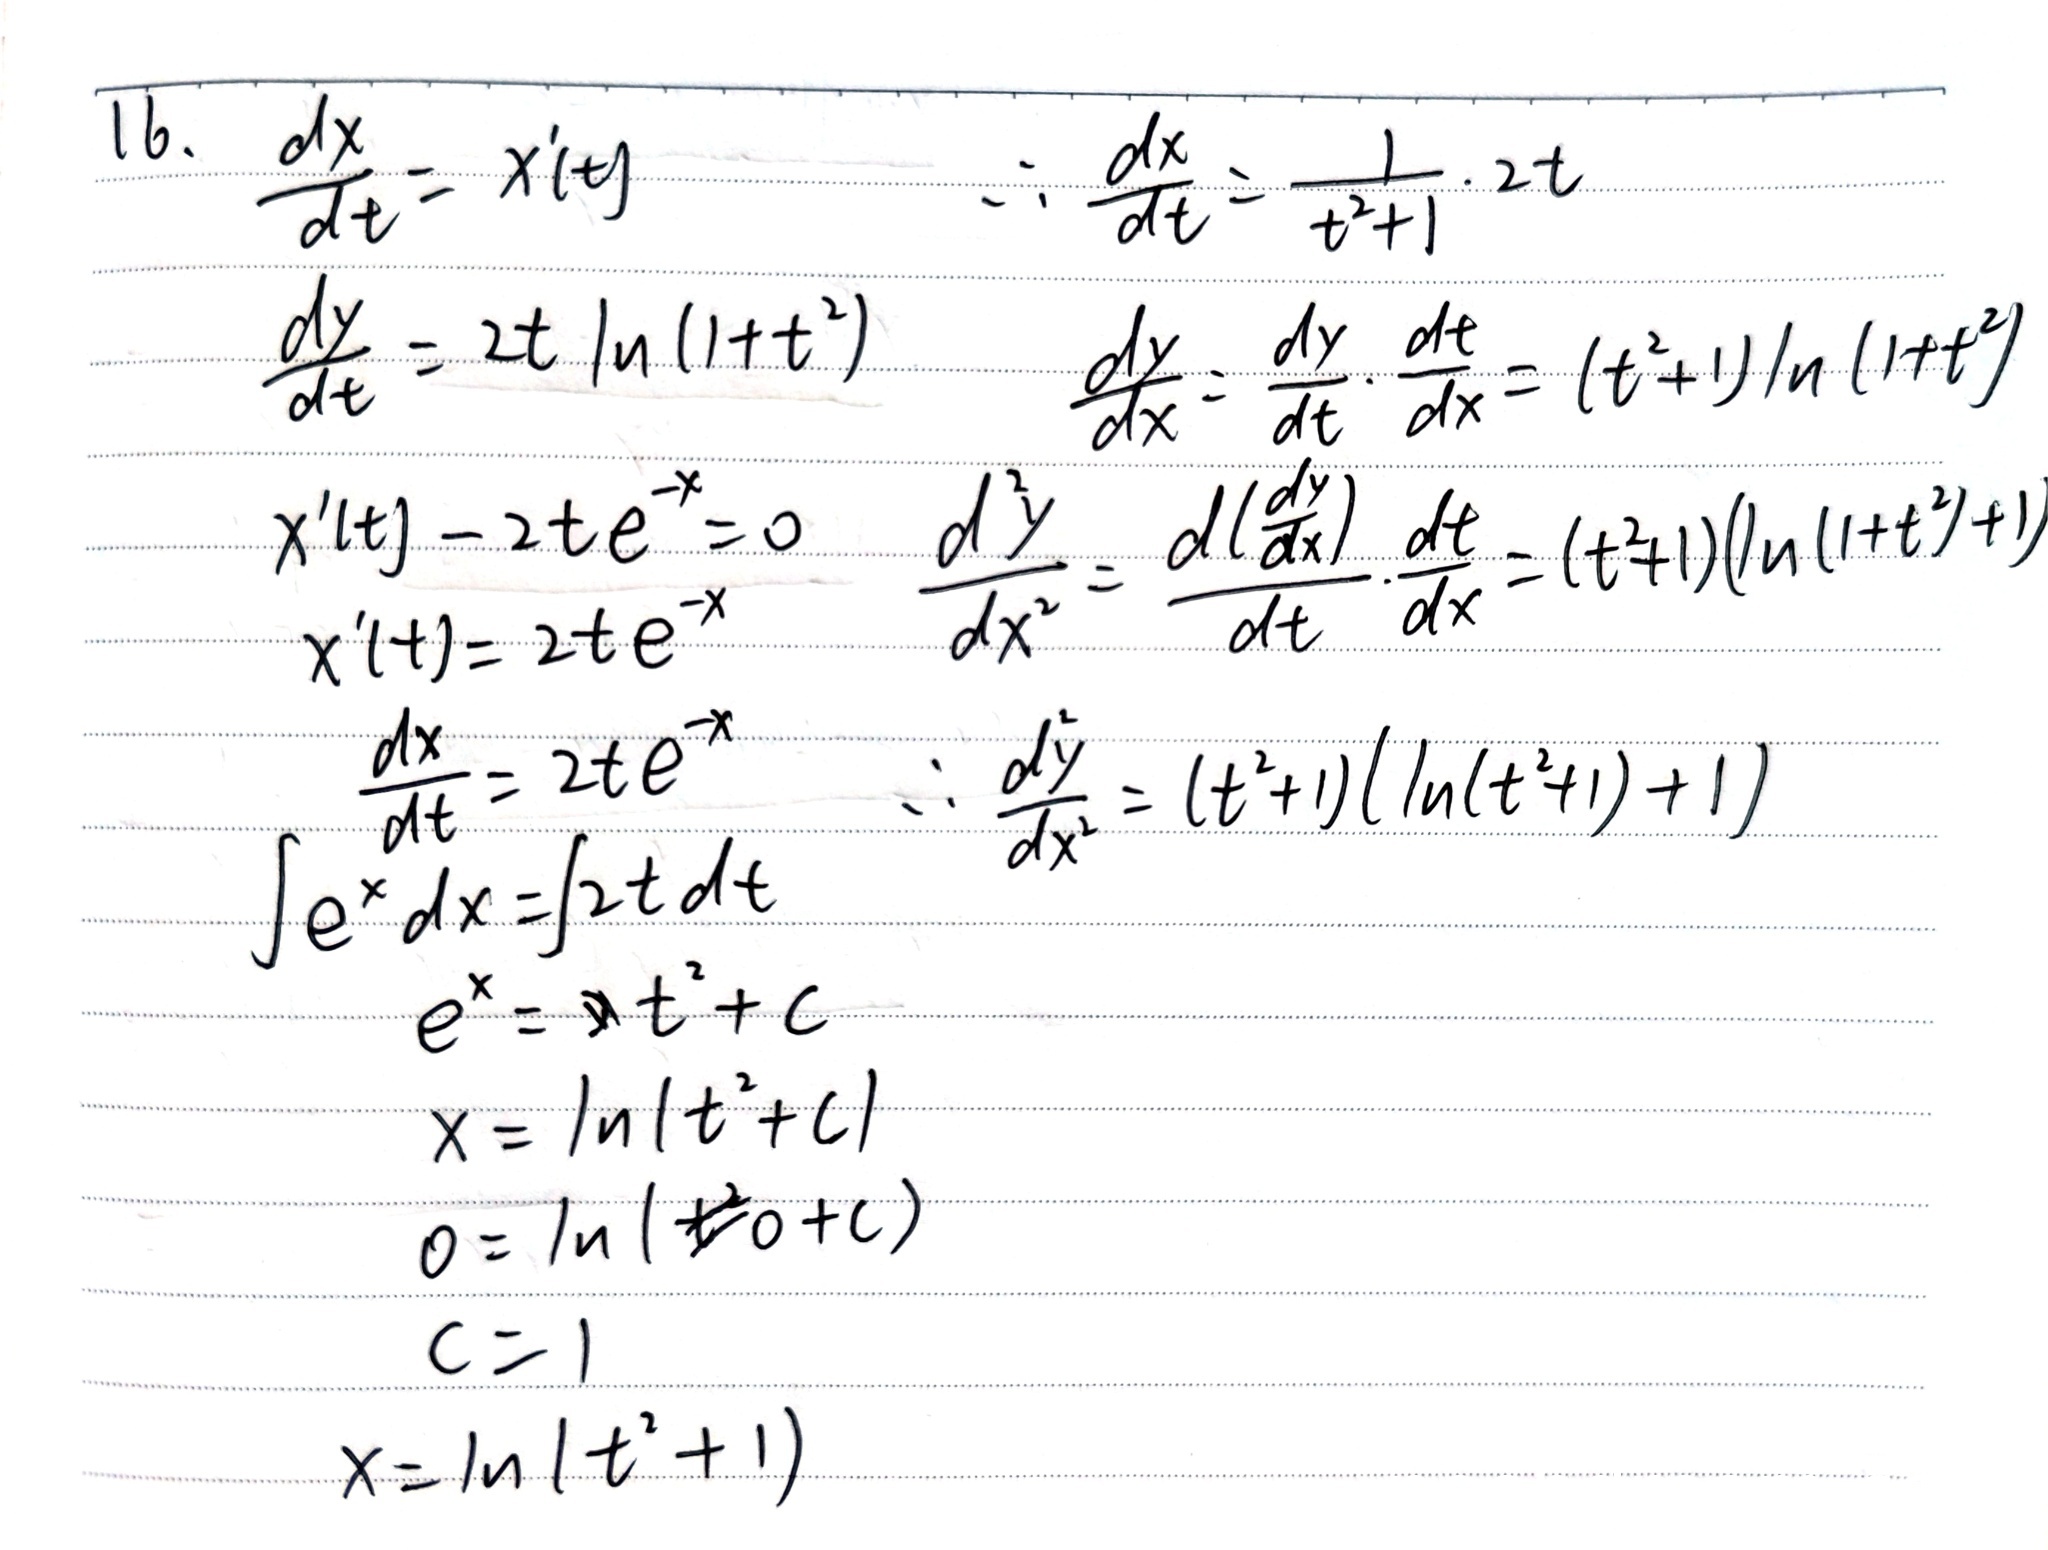 16. dx/dt = x'(t)
dy/dt = 2t ln(1+t²)
x'(t) - 2te^-x = 0
x'(t) = 2te^-x
dx/dt = 2te^-x
∫e^x dx = ∫2t dt
e^x = t² + C
x = ln(t² + C)
0 = ln(0 + C)
C = 1
x = ln(t² + 1)
∴ dx/dt = 1/(t²+1) · 2t
dy/dx = dy/dt · dt/dx = (t²+1) ln(1+t²)
d²y/dx² = d(dy/dx)/dt · dt/dx = (t²+1)(ln(1+t²)+1)
∴ d²y/dx² = (t²+1)(ln(t²+1)+1)